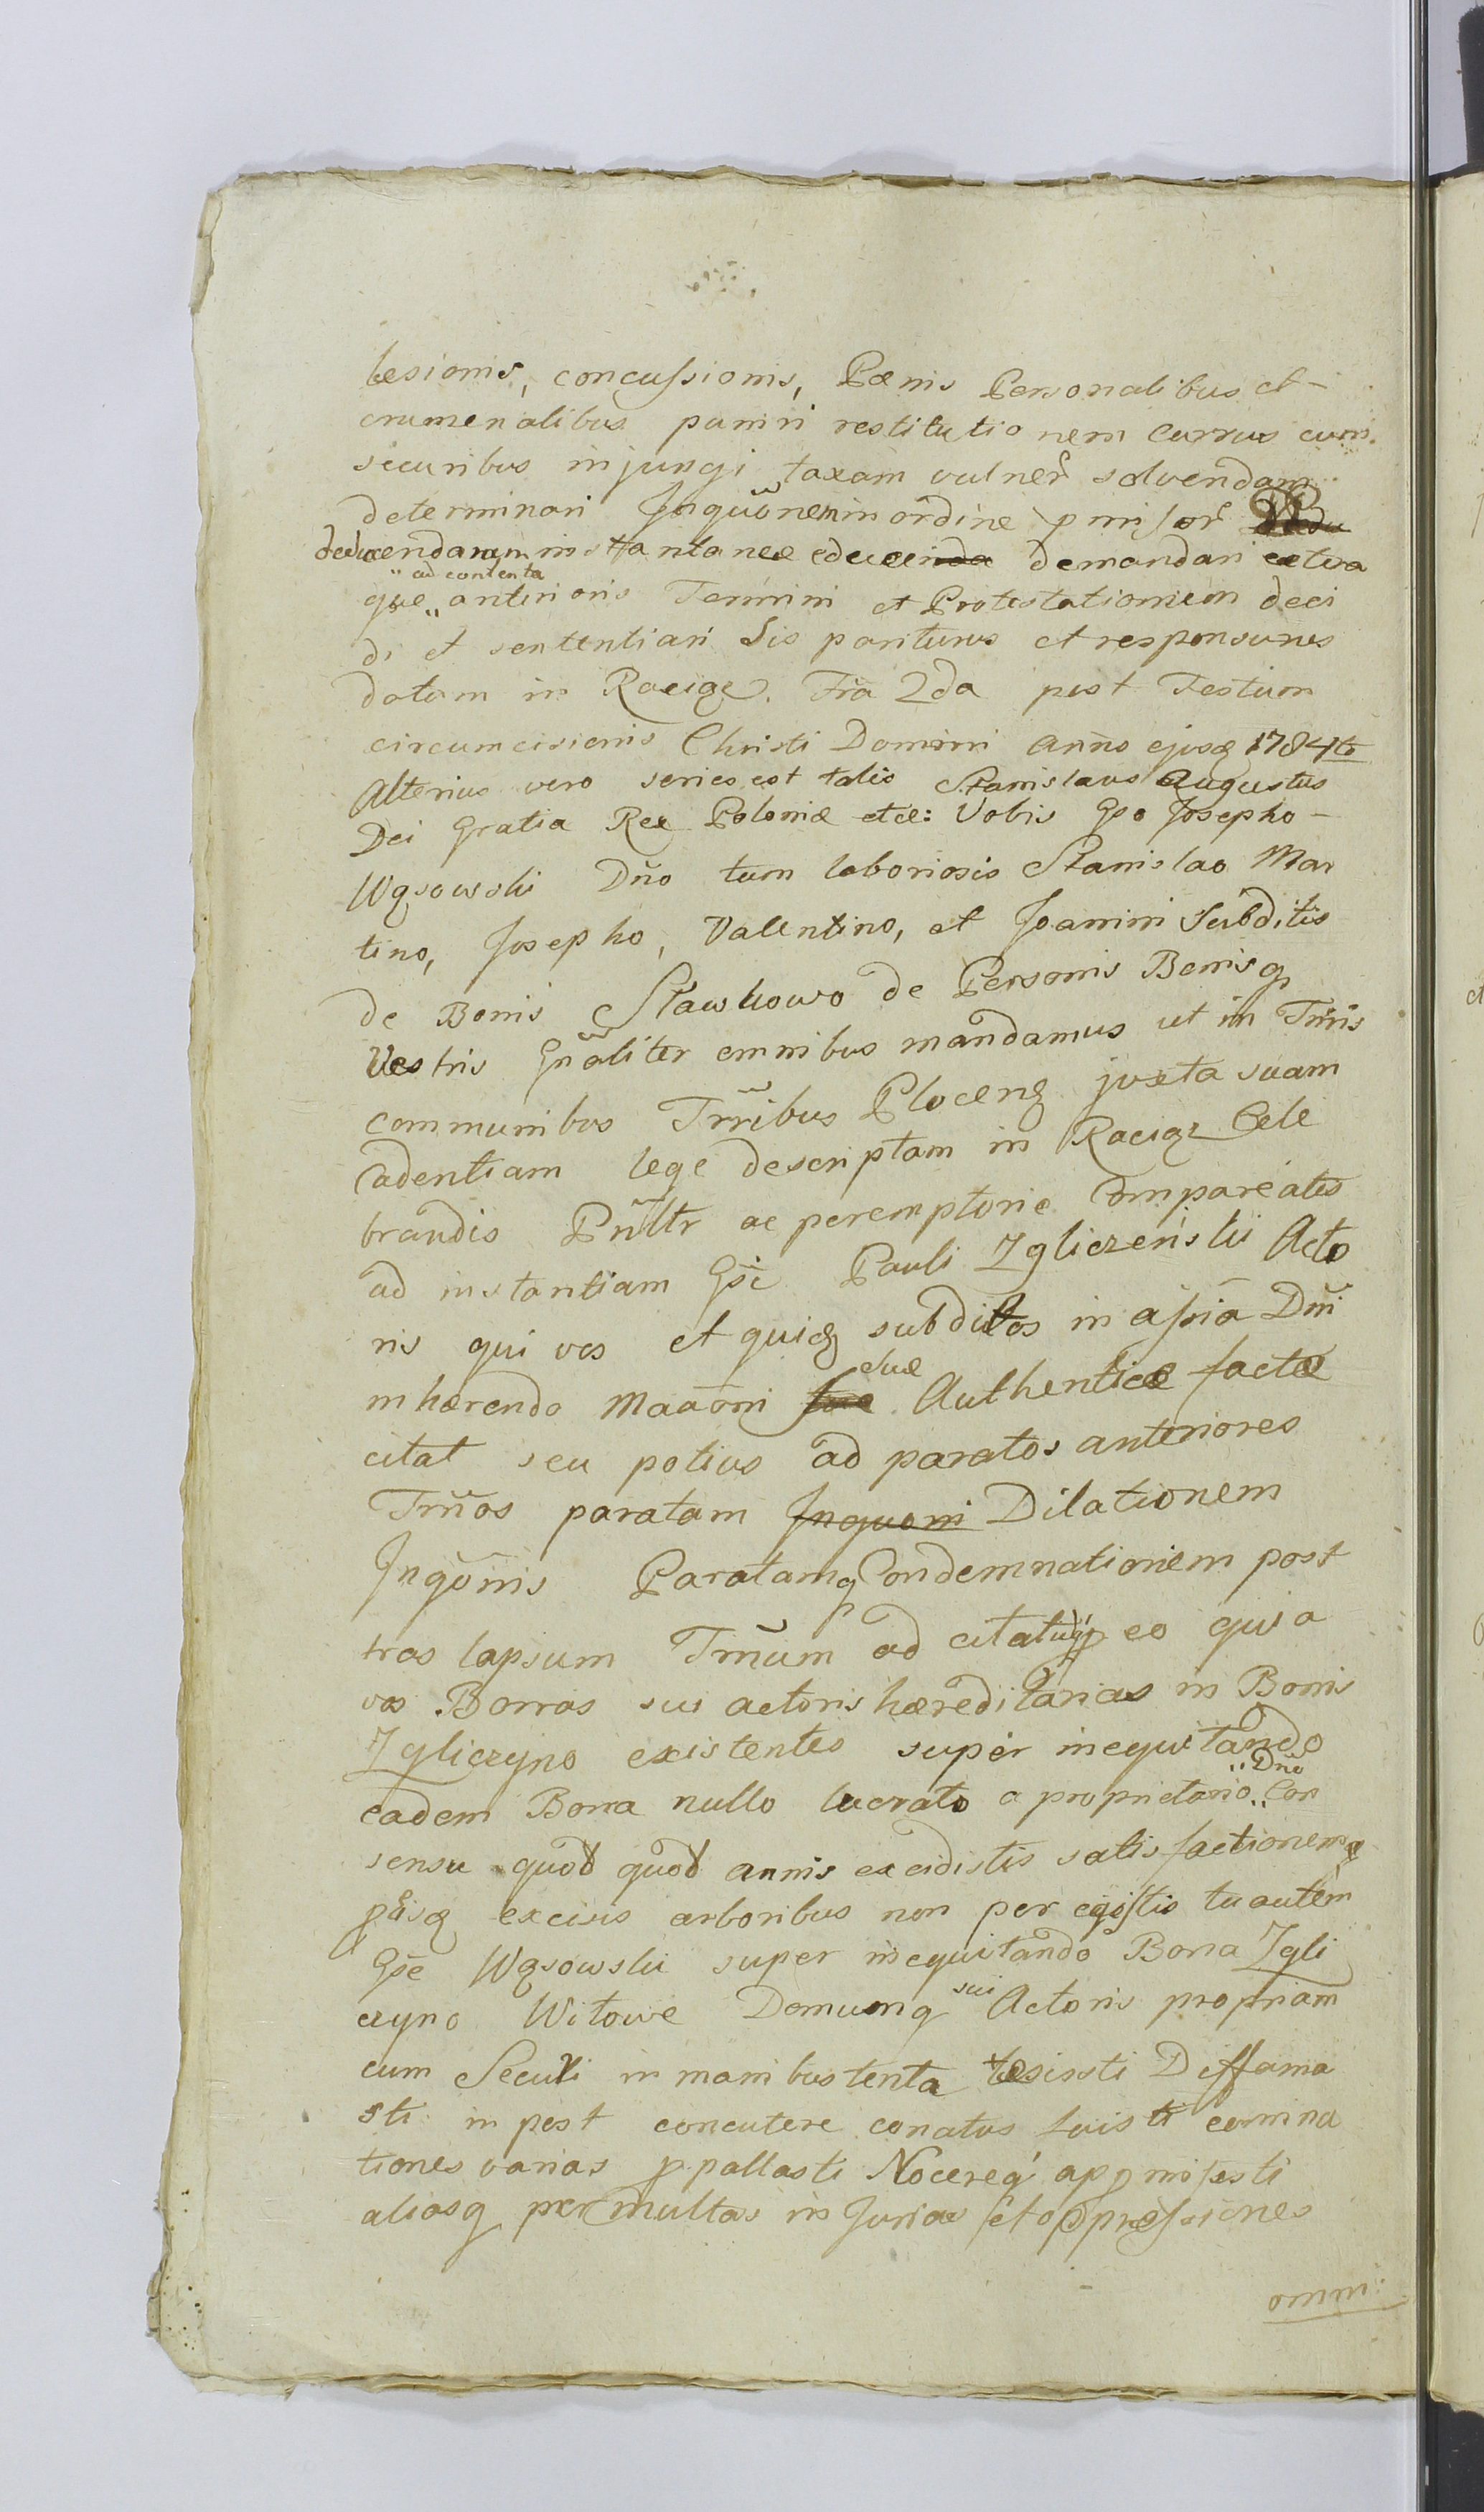 læsionis, concussionis, Pœnis Personalibus et
crumenalibus puniri restitutionem Currus cum
securibus injungi taxam vulner̃ solvendam
determinari Inquõnem in ordine pmissor̃
deducendaram instantanee educenda demandari cætera
que „ad contenta„ anterioris Termini et Protestationum deci
di et sententiari Sis pariturus et responsurus
datum in Raciąz. Fria 2da post Festum
circumcisionis Christi Domini anno ejusq 1784to
Alterius vero series est talis Stanislaus Augustus
Dei Gratia Rex Poloniæ etcæ: Vobis Gso Josepho
Wąsowski Dño tum laboriosis Stanislao Mar
tino, Josepho, Valentino, et Joanni Subditis
de Bonis Sławkowo de Personis Bonisq
Vestris Gñaliter omnibus mandamus ut in Trñis
communibus Trrribus Plocenq juxta suam
Cadentiam lege descriptam in Raciąz Cele
brandis Pñltr ac peremptorie Compareatis
ad instantiam Gsi Pauli Zgliczeński Acto
ris qui vos et quidq subditos in assia Dñi
inhærendo Maãoni suæ Authenticæ factæ
citat seu potius ad paratos anteriores
Trños paratam Inquoni Dilationem
Inqõnis Paratamq Condemnationem post
tras lapsum Trñum ad citatuq p eo quia
vos Borras sui actoris hæreditarias in Bonis
Zgliczyno existentes super inequitando
eadem Bona nullo lucrato a proprietario „Dño„ Con
sensu quod quod annis excidistis satisfactionemq
pdisq excisis arboribus non peregistis tu autem
Gse Wąsowski super inequitando Bona Zgli
czyno Witowe Domumq sui Actoris propriam
cum Securi in manibus tenta læsisti Diffama
sti in post concutere conatus fuisti comina
tiones varias ppallasti Nocereq appmisisti
aliosq permultas injurias et oppressiones
omni: